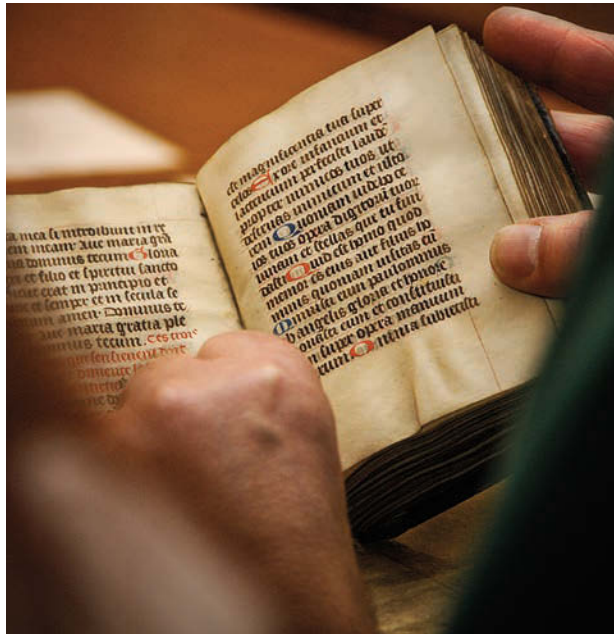 mea si introibunt in re
em meam: Aue maria gra
dominus tecum Gloria
et filio et spiritui sancto
icut erat in principio et
et semper et in secula se
um amen. Dominus te
ue maria gratia ple
ominus tecum. Ces trois
est magnificentia tua super
celos Ex ore infancium et
lactencium perfecisti laude
propter inimicos tuos ut
destruas inimicum et ulto
rem Quoniam uidebo ce
los tuos opera digitorum tuor
lunam et stellas que tu fun
dasti Quid est homo quod
memor es eius aut filius ho
minis quoniam uisitas eu
Minuisti eum paulominus
ab angelis gloria et honore
onasti eum et constituisti
m super opera manuum
rum Omnia subiecisti